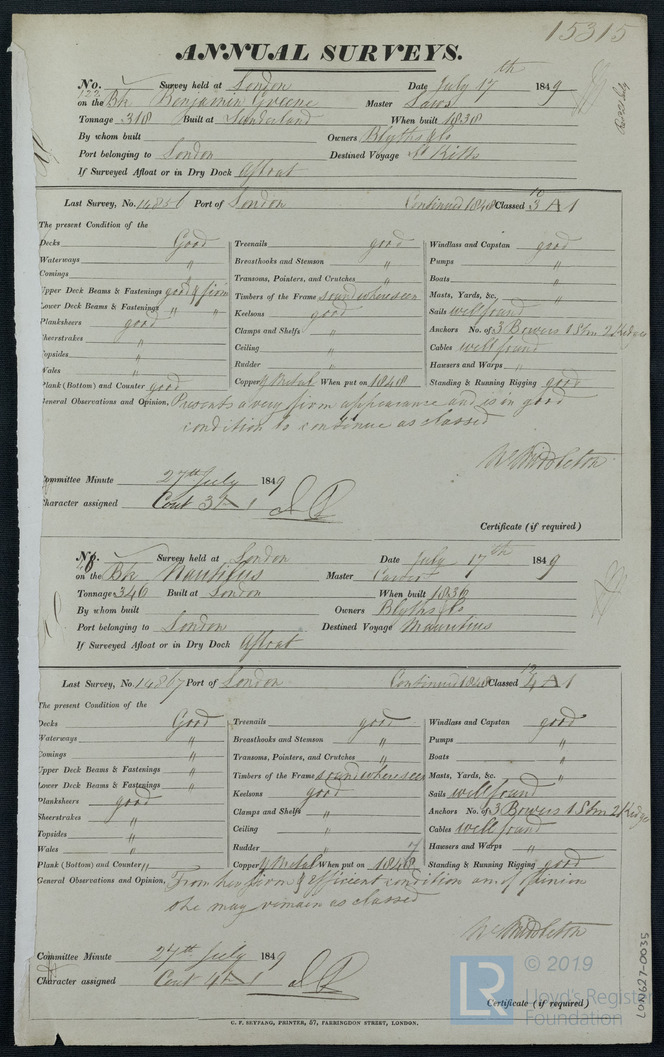 15315
ANNUAL SURVEYS.
No. Survey held at London Date July 17th 1849
on the Bk Benjamin Greene Master Laws
Tonnage 318 Built at Sunderland When built 1838
By whom built Owners Blyths & Co
Port belonging to London Destined Voyage St Kitts
If Surveyed Afloat or in Dry Dock Afloat
Last Survey, No. 14856 Port of London Continued 1848 Classed 10/3 A 1
The present Condition of the
Decks Good
Waterways "
Comings "
Upper Deck Beams & Fastenings good & firm
Lower Deck Beams & Fastenings " "
Planksheers good
Sheerstrakes "
Topsides "
Wales "
Plank (Bottom) and Counter good
Treenails good
Breasthooks and Stemson "
Transoms, Pointers, and Crutches "
Timbers of the Frame sound where seen
Keelsons good
Clamps and Shelfs "
Ceiling "
Rudder "
Copper Y Metal When put on 1848
Windlass and Capstan good
Pumps "
Boats "
Masts, Yards, &c. "
Sails well found
Anchors No. of 3 Bowers 1 Strm 2 Kedges
Cables well found
Hawsers and Warps "
Standing & Running Rigging good
General Observations and Opinion, Presents a very firm appearance and is in good
condition to continue as classed
W Middleton
Committee Minute 27th July 1849
Character assigned Cont 3 A 1
Certificate (if required)
No. Survey held at London Date July 17th 1849
on the Bk Nautilus Master Carter
Tonnage 346 Built at London When built 1836
By whom built Owners Blyths & Co
Port belonging to London Destined Voyage Mauritius
If Surveyed Afloat or in Dry Dock Afloat
Last Survey, No. 14867 Port of London Continued 1848 Classed 12/4 A 1
The present Condition of the
Decks Good
Waterways "
Comings "
Upper Deck Beams & Fastenings "
Lower Deck Beams & Fastenings "
Planksheers good
Sheerstrakes "
Topsides "
Wales "
Plank (Bottom) and Counter "
Treenails good
Breasthooks and Stemson "
Transoms, Pointers, and Crutches "
Timbers of the Frame sound where seen
Keelsons good
Clamps and Shelfs "
Ceiling "
Rudder "
Copper Y Metal When put on 1848
Windlass and Capstan good
Pumps "
Boats "
Masts, Yards, &c. "
Sails well found
Anchors No. of 3 Bowers 1 Strm 2 Kedge
Cables well found
Hawsers and Warps "
Standing & Running Rigging good
General Observations and Opinion, From her firm & efficient condition am of opinion
she may remain as classed
W Middleton
Committee Minute 27th July 1849
Character assigned Cont 4 A 1
Certificate (if required)
C. F. SEYFANG, PRINTER, 57, FARRINGDON STREET, LONDON.
LON627-0035
LR © 2019
Lloyd's Register
Foundation